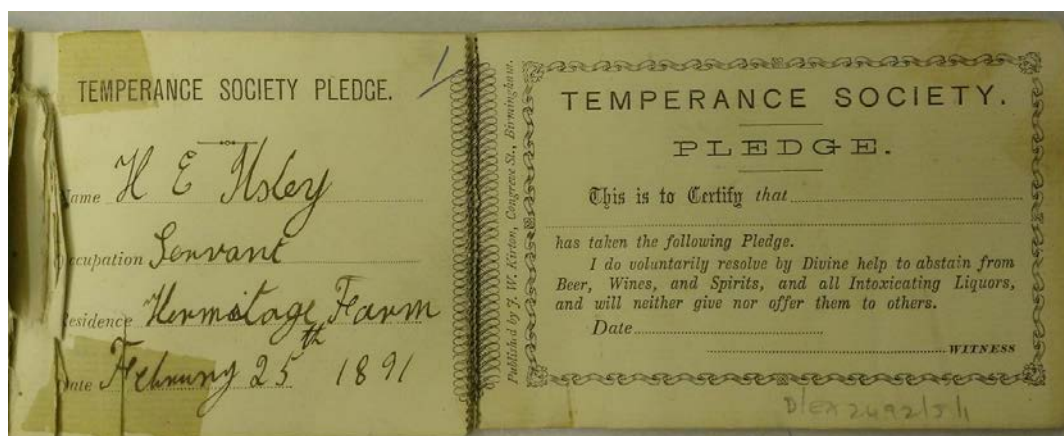 TEMPERANCE SOCIETY PLEDGE.
Name H E Ilsley
Occupation Servant
Residence Hermitage Farm
Date February 25th 1891
Published by J. W. Kirton, Congreve St., Birmingham.
TEMPERANCE SOCIETY.
PLEDGE.
This is to Certify that
has taken the following Pledge.
I do voluntarily resolve by Divine help to abstain from
Beer, Wines, and Spirits, and all Intoxicating Liquors,
and will neither give nor offer them to others.
Date
WITNESS
D/EX 2492/5/1